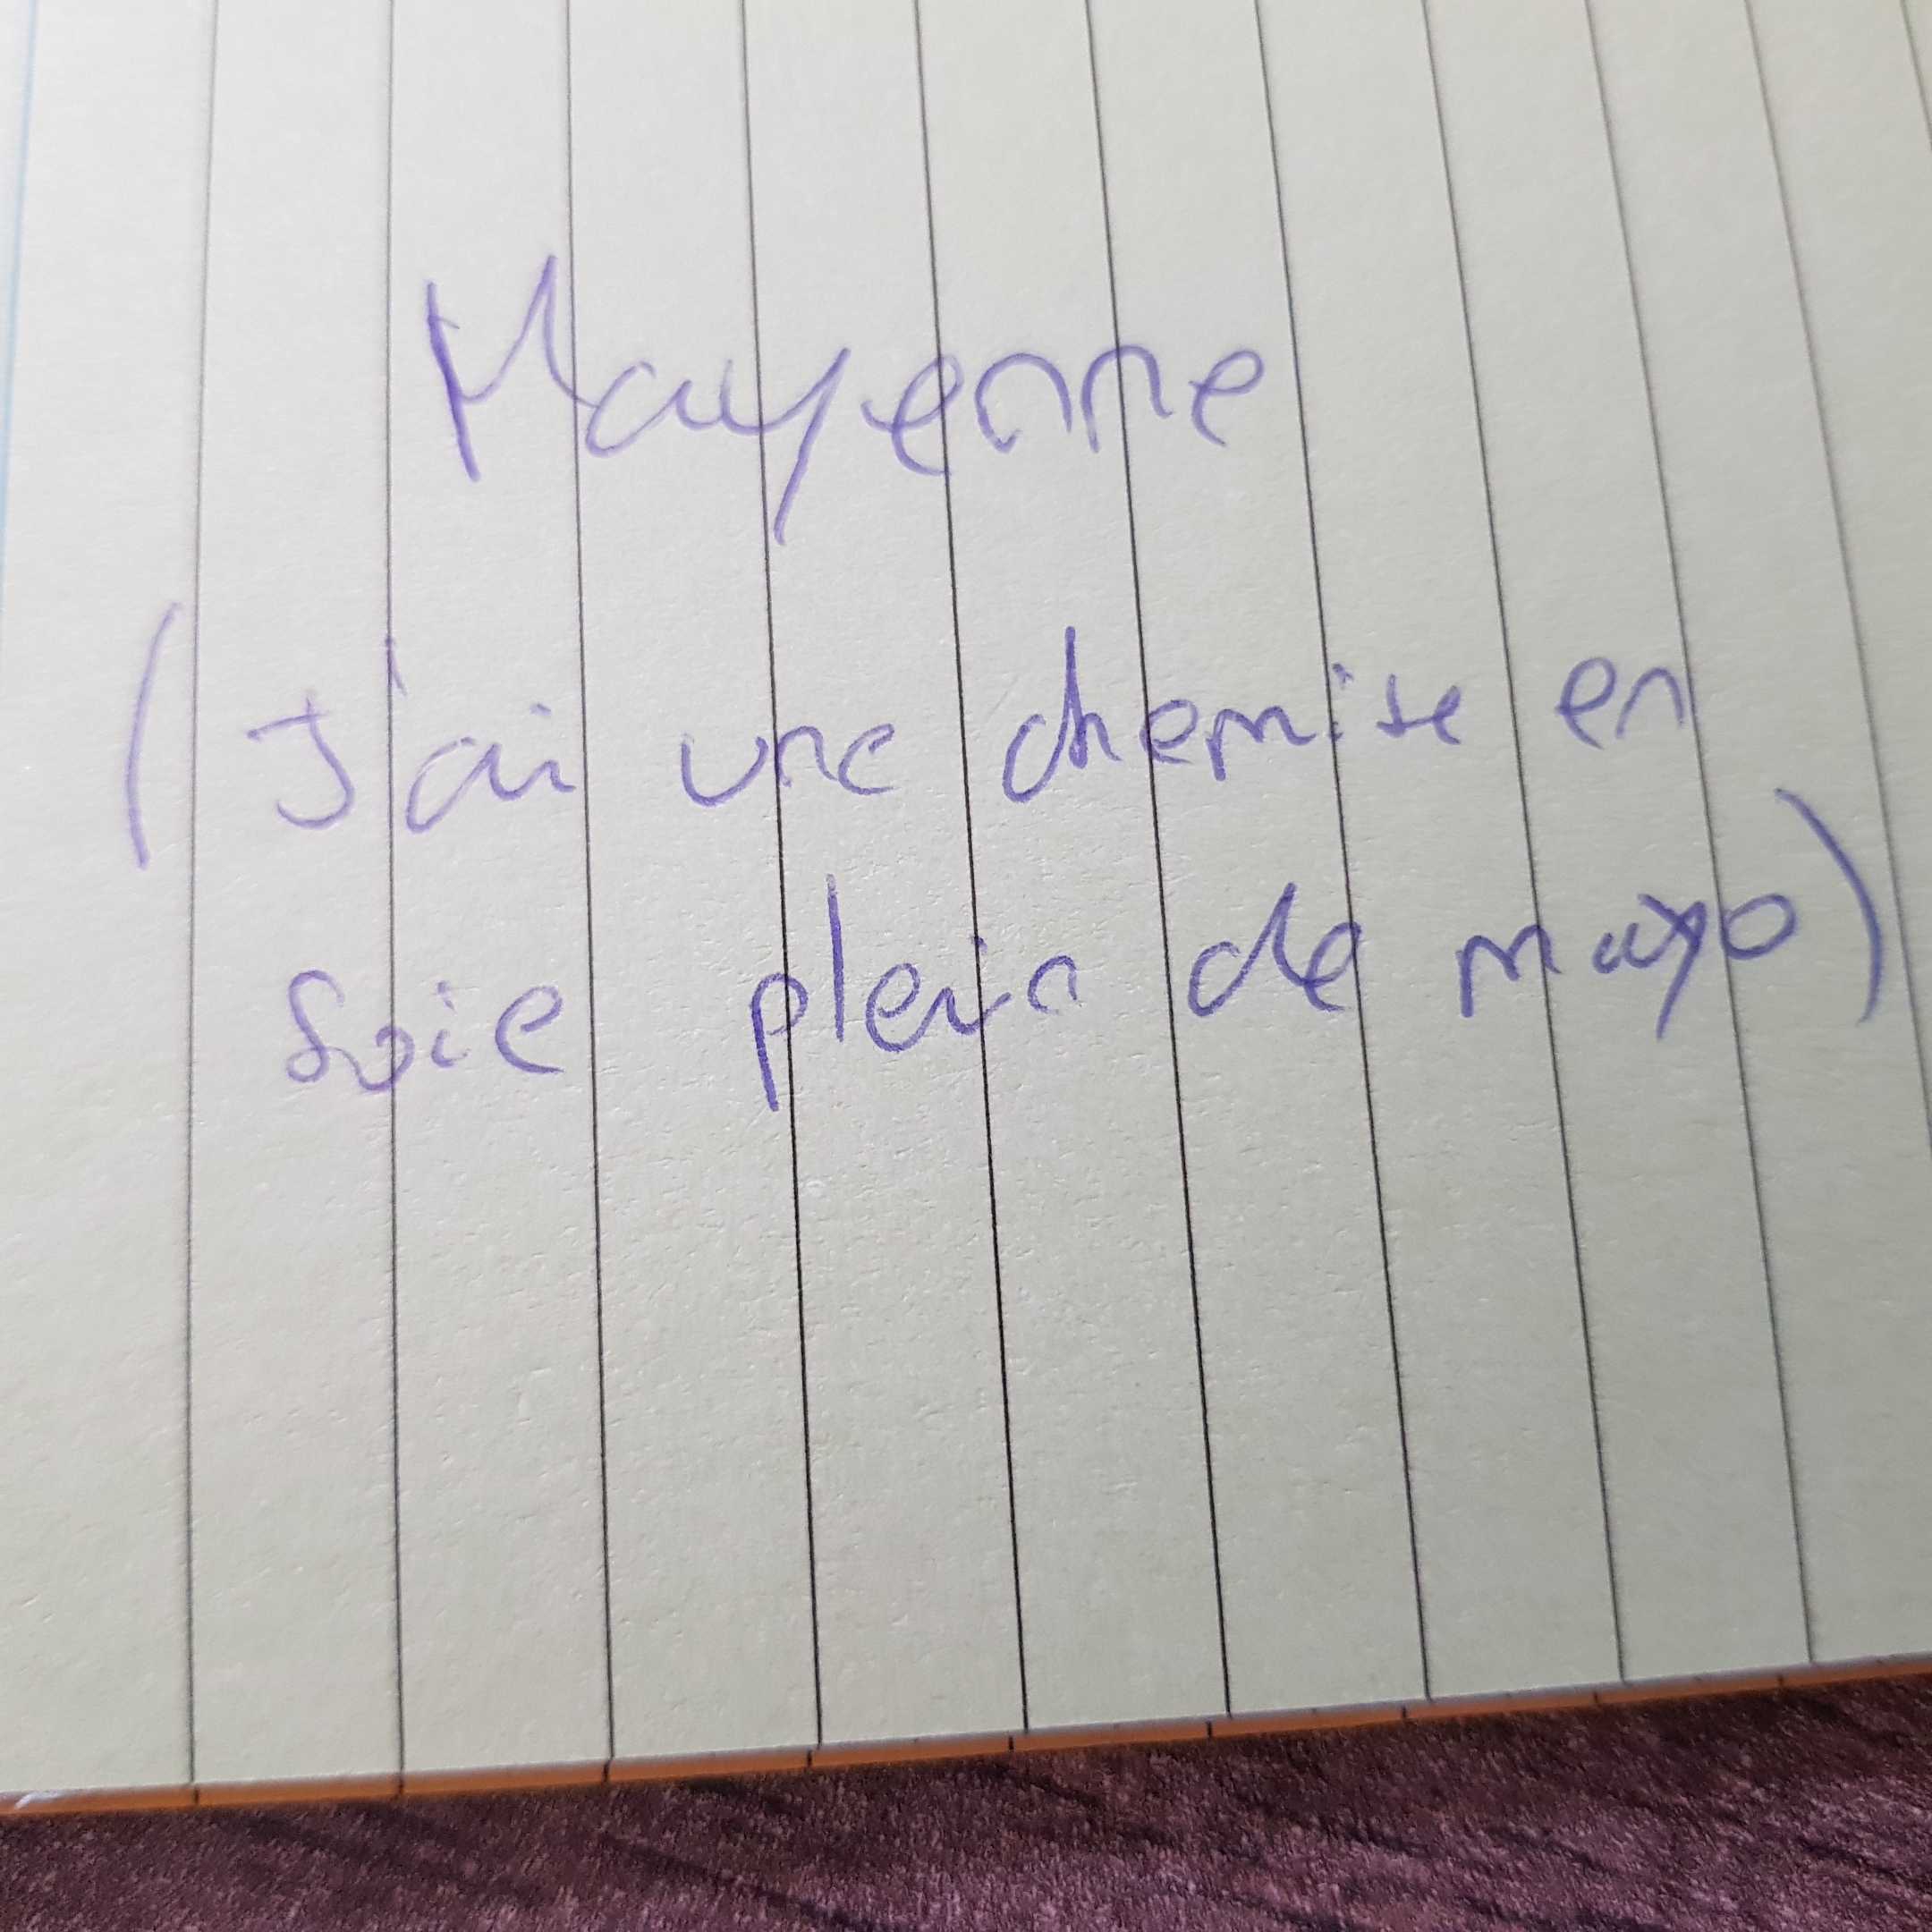 Mayenne
(J'ai une chemise en
soie plein de mayo)